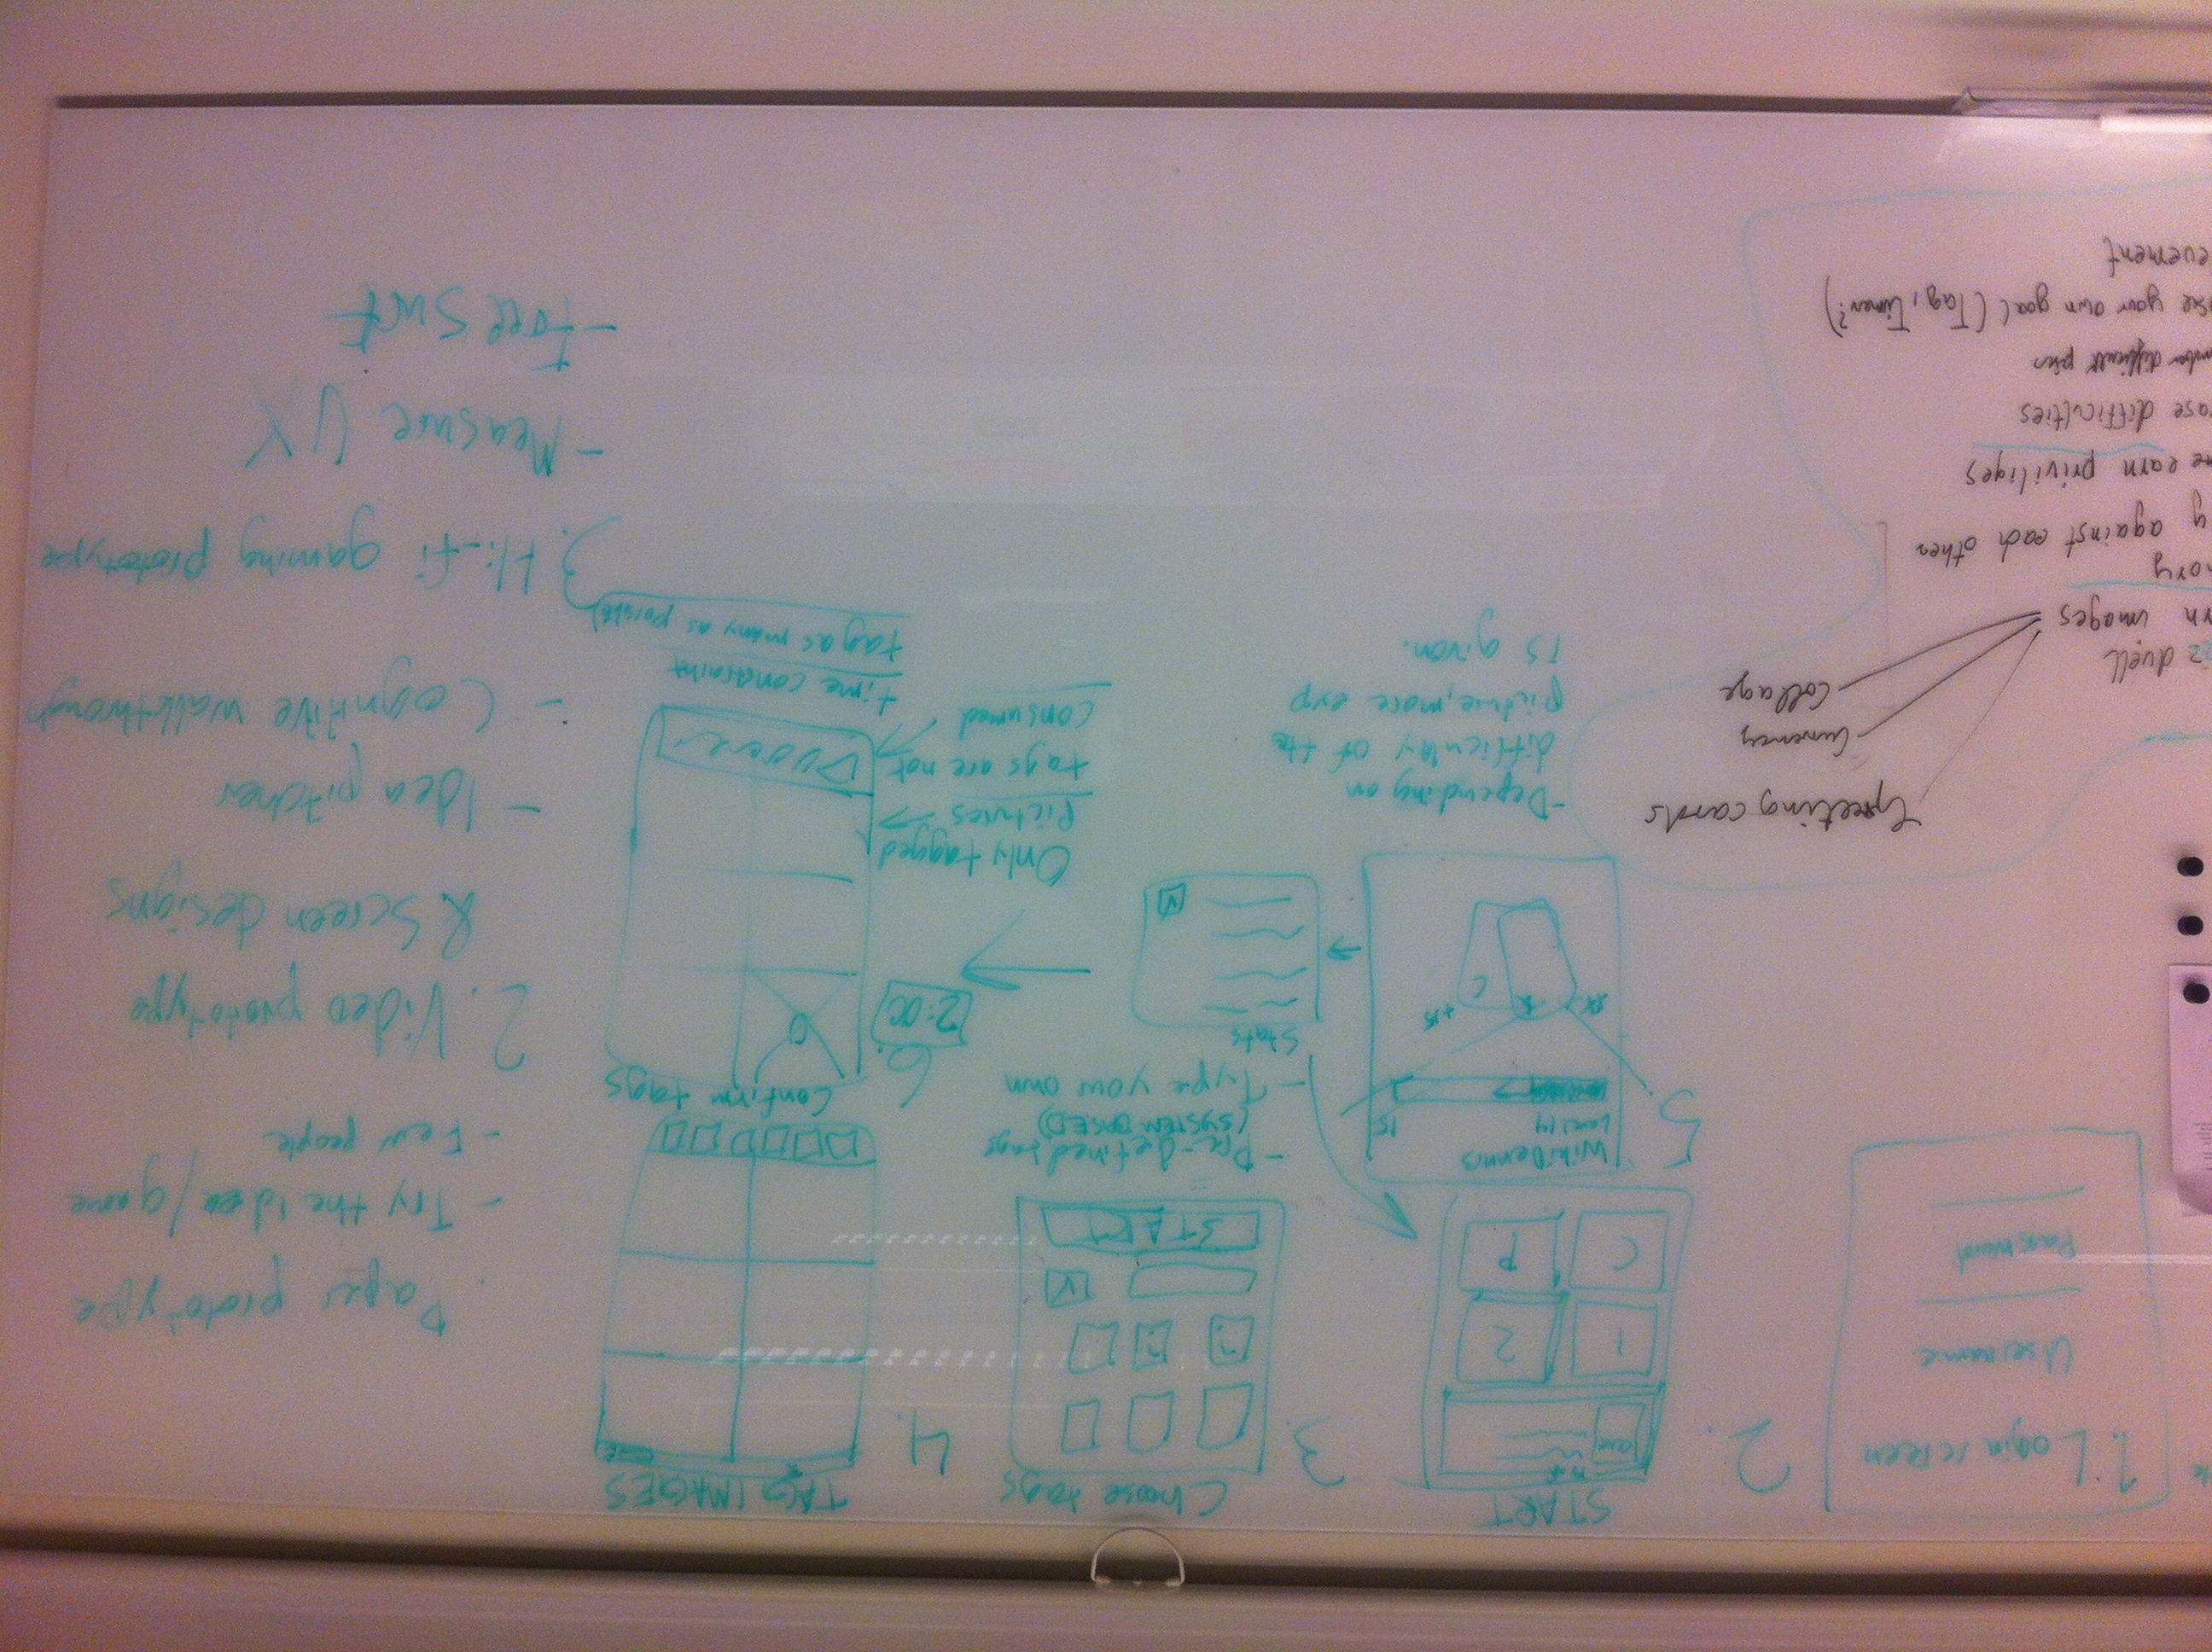 1. Login screen
Username
Password
2.
START
1
2
C
P
3.
Choose tags
?
?
START
- Pre-defined tags
(SYSTEM BASED)
- Type your own
4.
TAG IMAGES
5.
WikiDennis
Level 14
15
C
+15
- Depending on
difficulty of the
picture, more exp
is given.
Stats
6.
Confirm tags
2:00
Only tagged
pictures
tags are not
consumed
time constraint
tag as many as possible
Paper prototype
- Try the idea/game
- Few people
2. Video prototype
& Screen designs
- Idea pitcher
- Cognitive walkthrough
3. Hi-fi gaming prototype
- Measure UX
- Free surf
Greeting cards
Currency
Collage
iz duell
rn images
ory
y against each other
re earn priviliges
ase difficulties
mber difficult pics
ose your own goal (Tag, Timer?)
evement